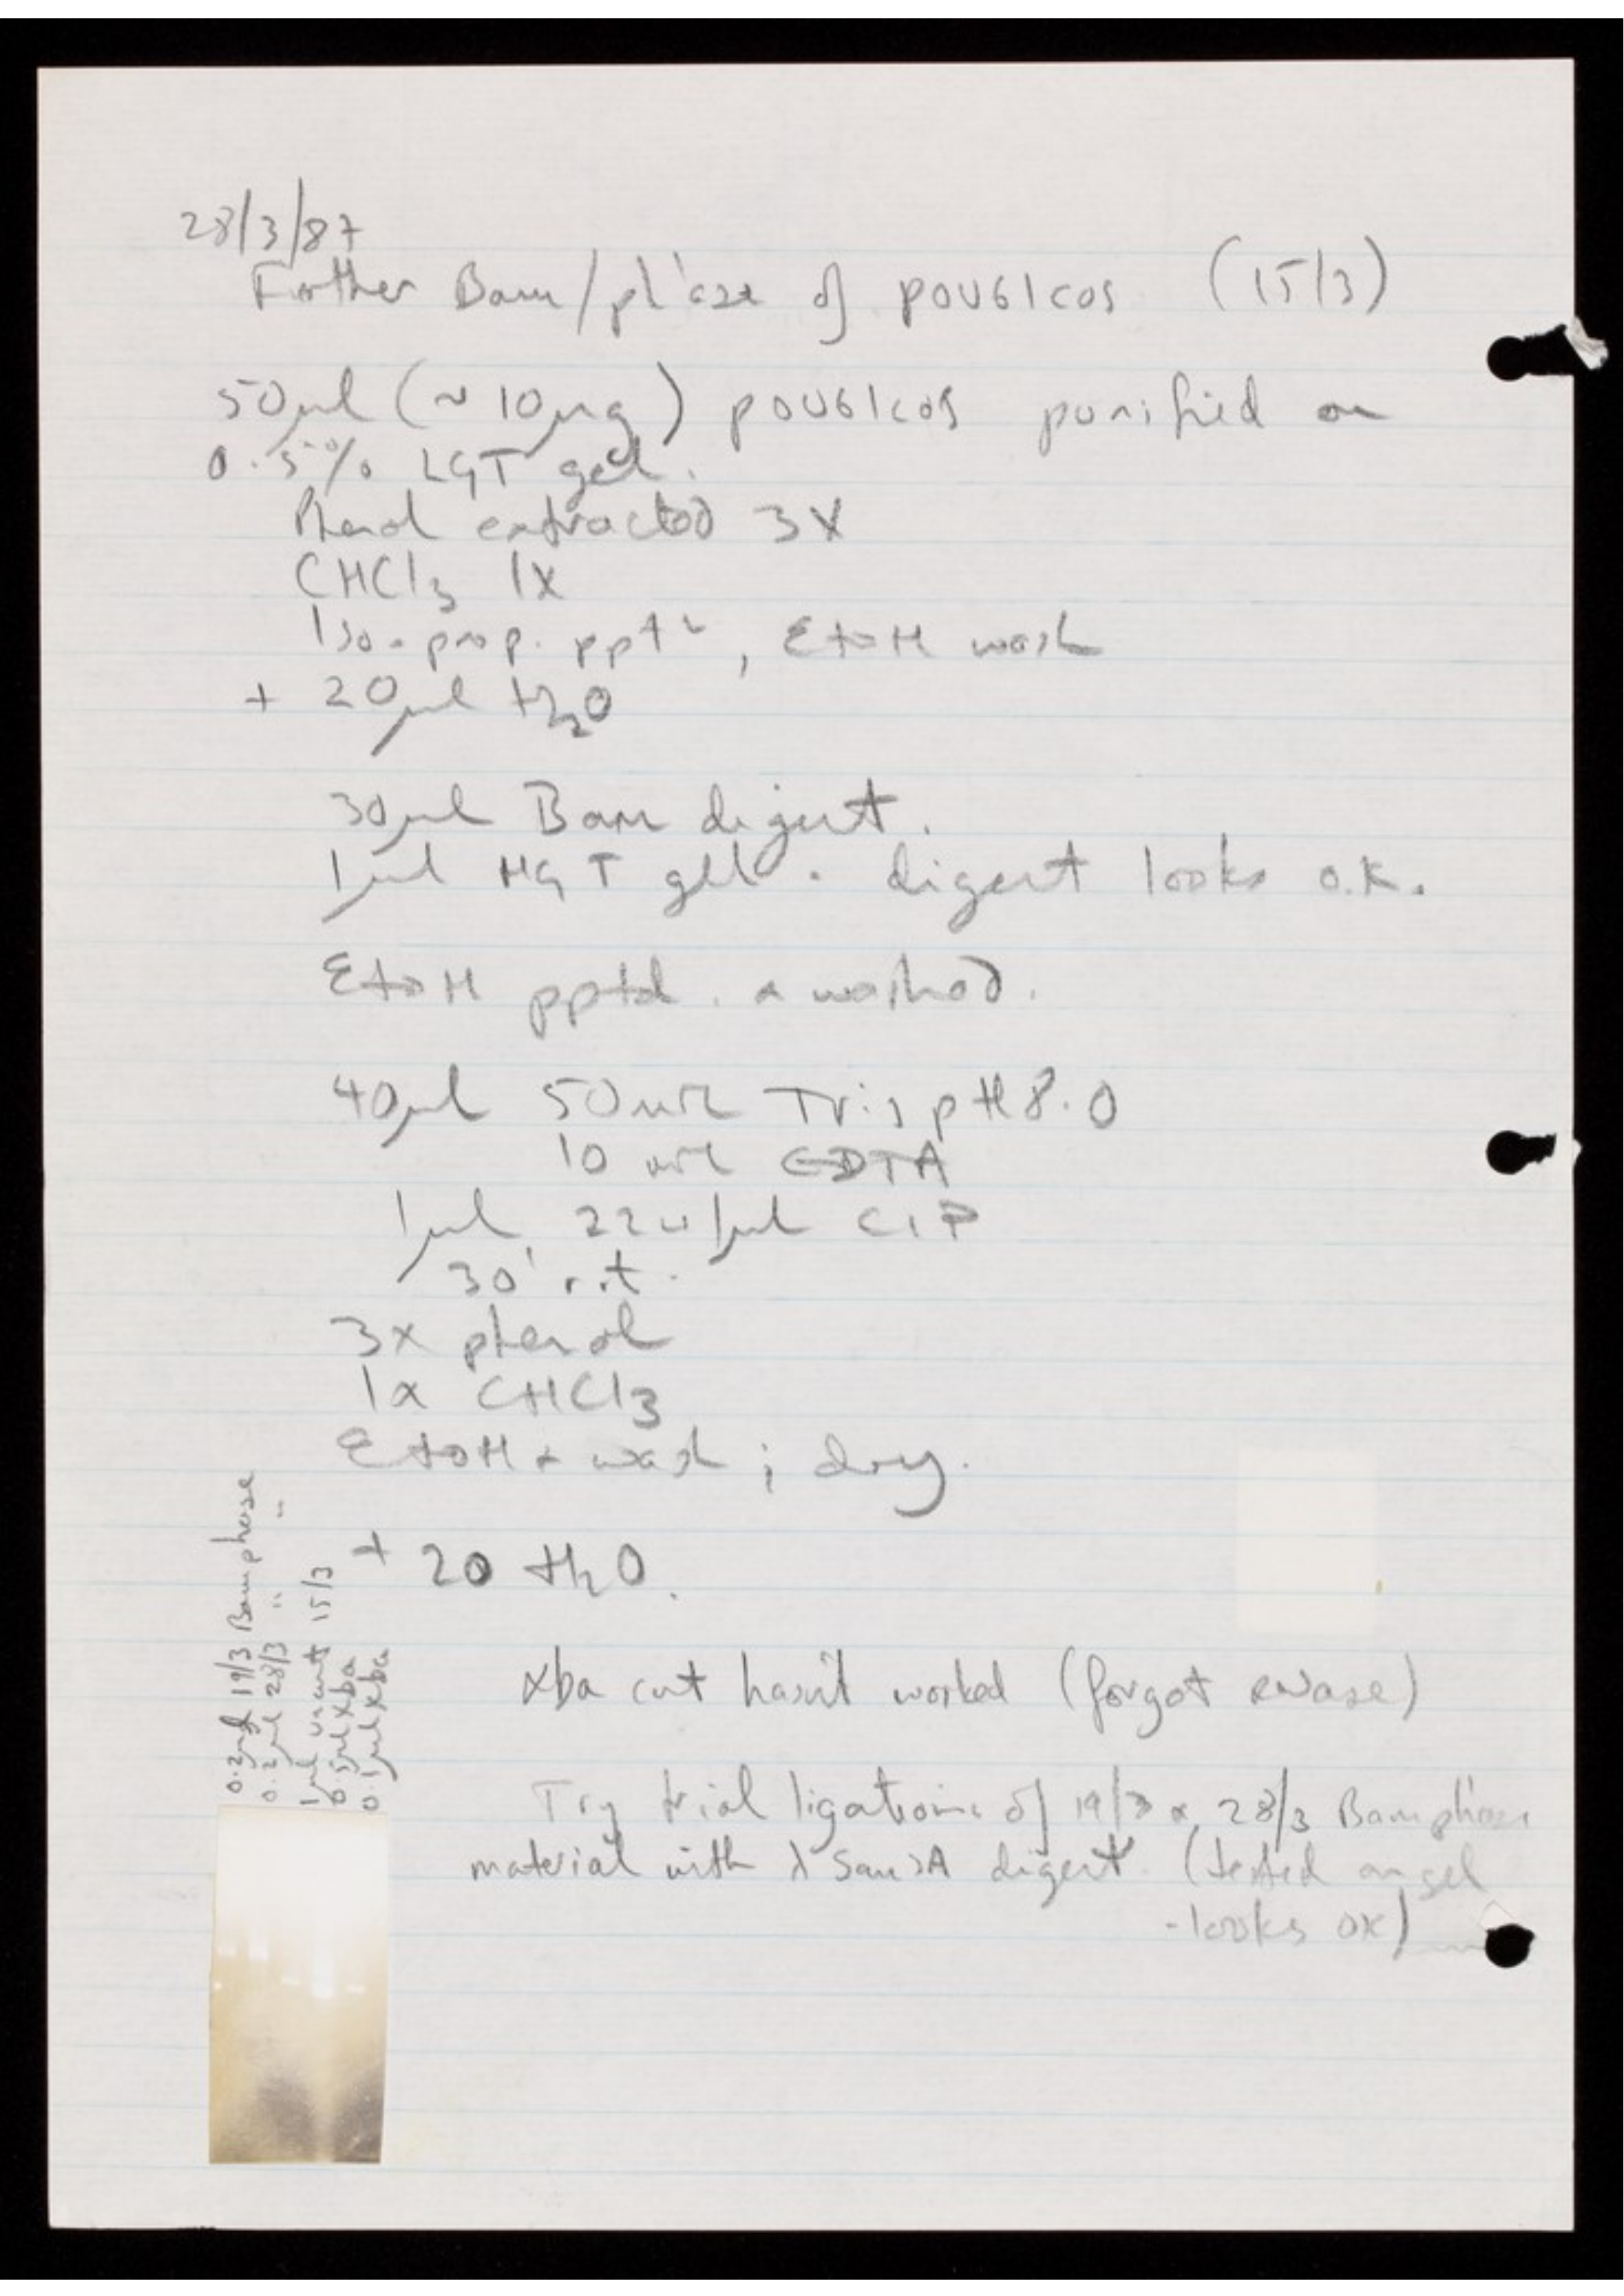 28/3/87
Further Bam/ph'ase of pOU61cos (15/3)
50µl (~10µg) pOU61cos purified on
0.5% LGT gel.
Phenol extracted 3X
CHCl3 1X
Iso-prop. pptn, EtOH wash
+ 20µl H2O
30µl Bam digest.
1µl HGT gel. digest looks o.k.
EtOH pptd. & washed.
40µl 50mM Tris pH8.0
10mM EDTA
1µl 22u/µl CIP
30' r.t.
3x phenol
1x CHCl3
EtOH + wash ; dry.
+ 20 H2O.
0.2µl 19/3 Bam phase
0.2µl 28/3 " "
1µl uncut 15/3
0.5µl xba
0.1µl xba
xba cut hasn't worked (forgot RNase)
Try trial ligations of 19/3 & 28/3 Bam ph'ase
material with λ Sau3A digest. (tested on gel
- looks OK)